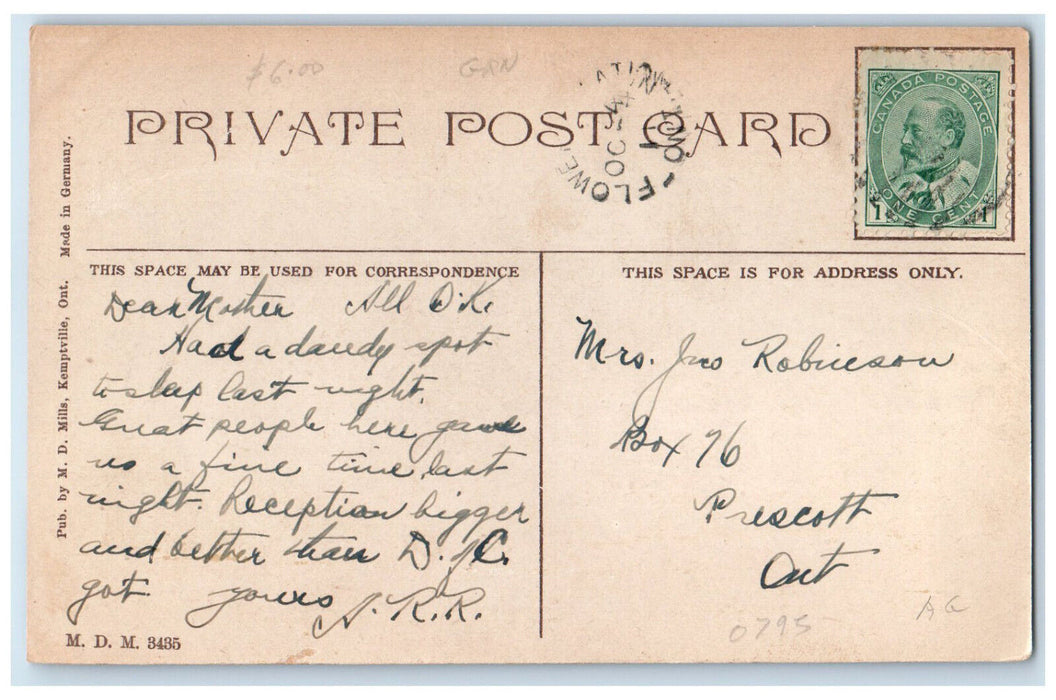 $6.00
CAN
PRIVATE POST CARD
FLOWER STATION ONT
OC
CANADA POSTAGE
ONE CENT
1 1
Pub. by M. D. Mills, Kemptville, Ont. Made in Germany.
THIS SPACE MAY BE USED FOR CORRESPONDENCE
Dear Mother All O.K.
Had a dandy spot
to sleep last night.
Great people here, gave
us a fine time last
night. Reception bigger
and better than D.
got. yours
R. R.
M. D. M. 3435
THIS SPACE IS FOR ADDRESS ONLY.
Mrs. Jno Robinson
Box 76
Prescott
Ont
0795-
AG